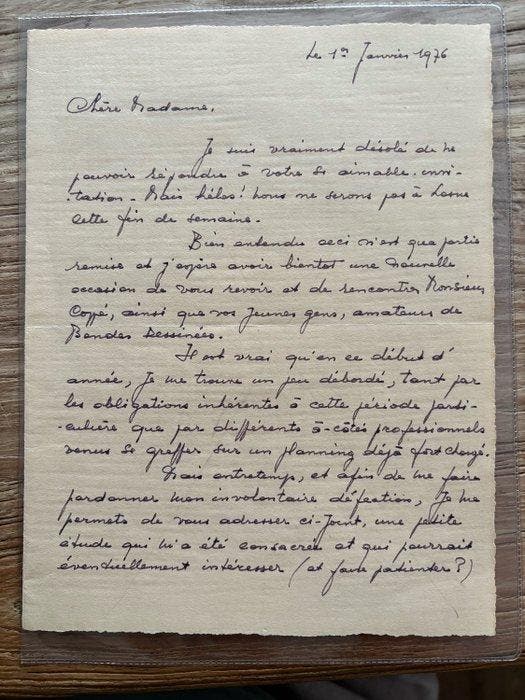 Le 1er Janvier 1976
Chère Madame,
Je suis vraiment désolé de ne
pouvoir répondre à votre si aimable invi-
-tation - Mais hélas! nous ne serons pas à Lasne
cette fin de semaine.
Bien entendu ceci n'est que partie
remise et j'espère avoir bientôt une nouvelle
occasion de vous revoir et de rencontrer Monsieur
Coppé, ainsi que vos jeunes gens, amateurs de
Bandes Dessinées.
Il est vrai qu'en ce début d'
année, je me trouve un peu débordé, tant par
les obligations inhérentes à cette période parti-
culière que par différents à-côtés professionnels
venus se greffer sur un planning déjà fort chargé.
Mais entretemps, et afin de me faire
pardonner mon involontaire défection, je me
permets de vous adresser ci-joint, une petite
étude qui m'a été consacrée et qui pourrait
éventuellement intéresser (et faire patienter?)